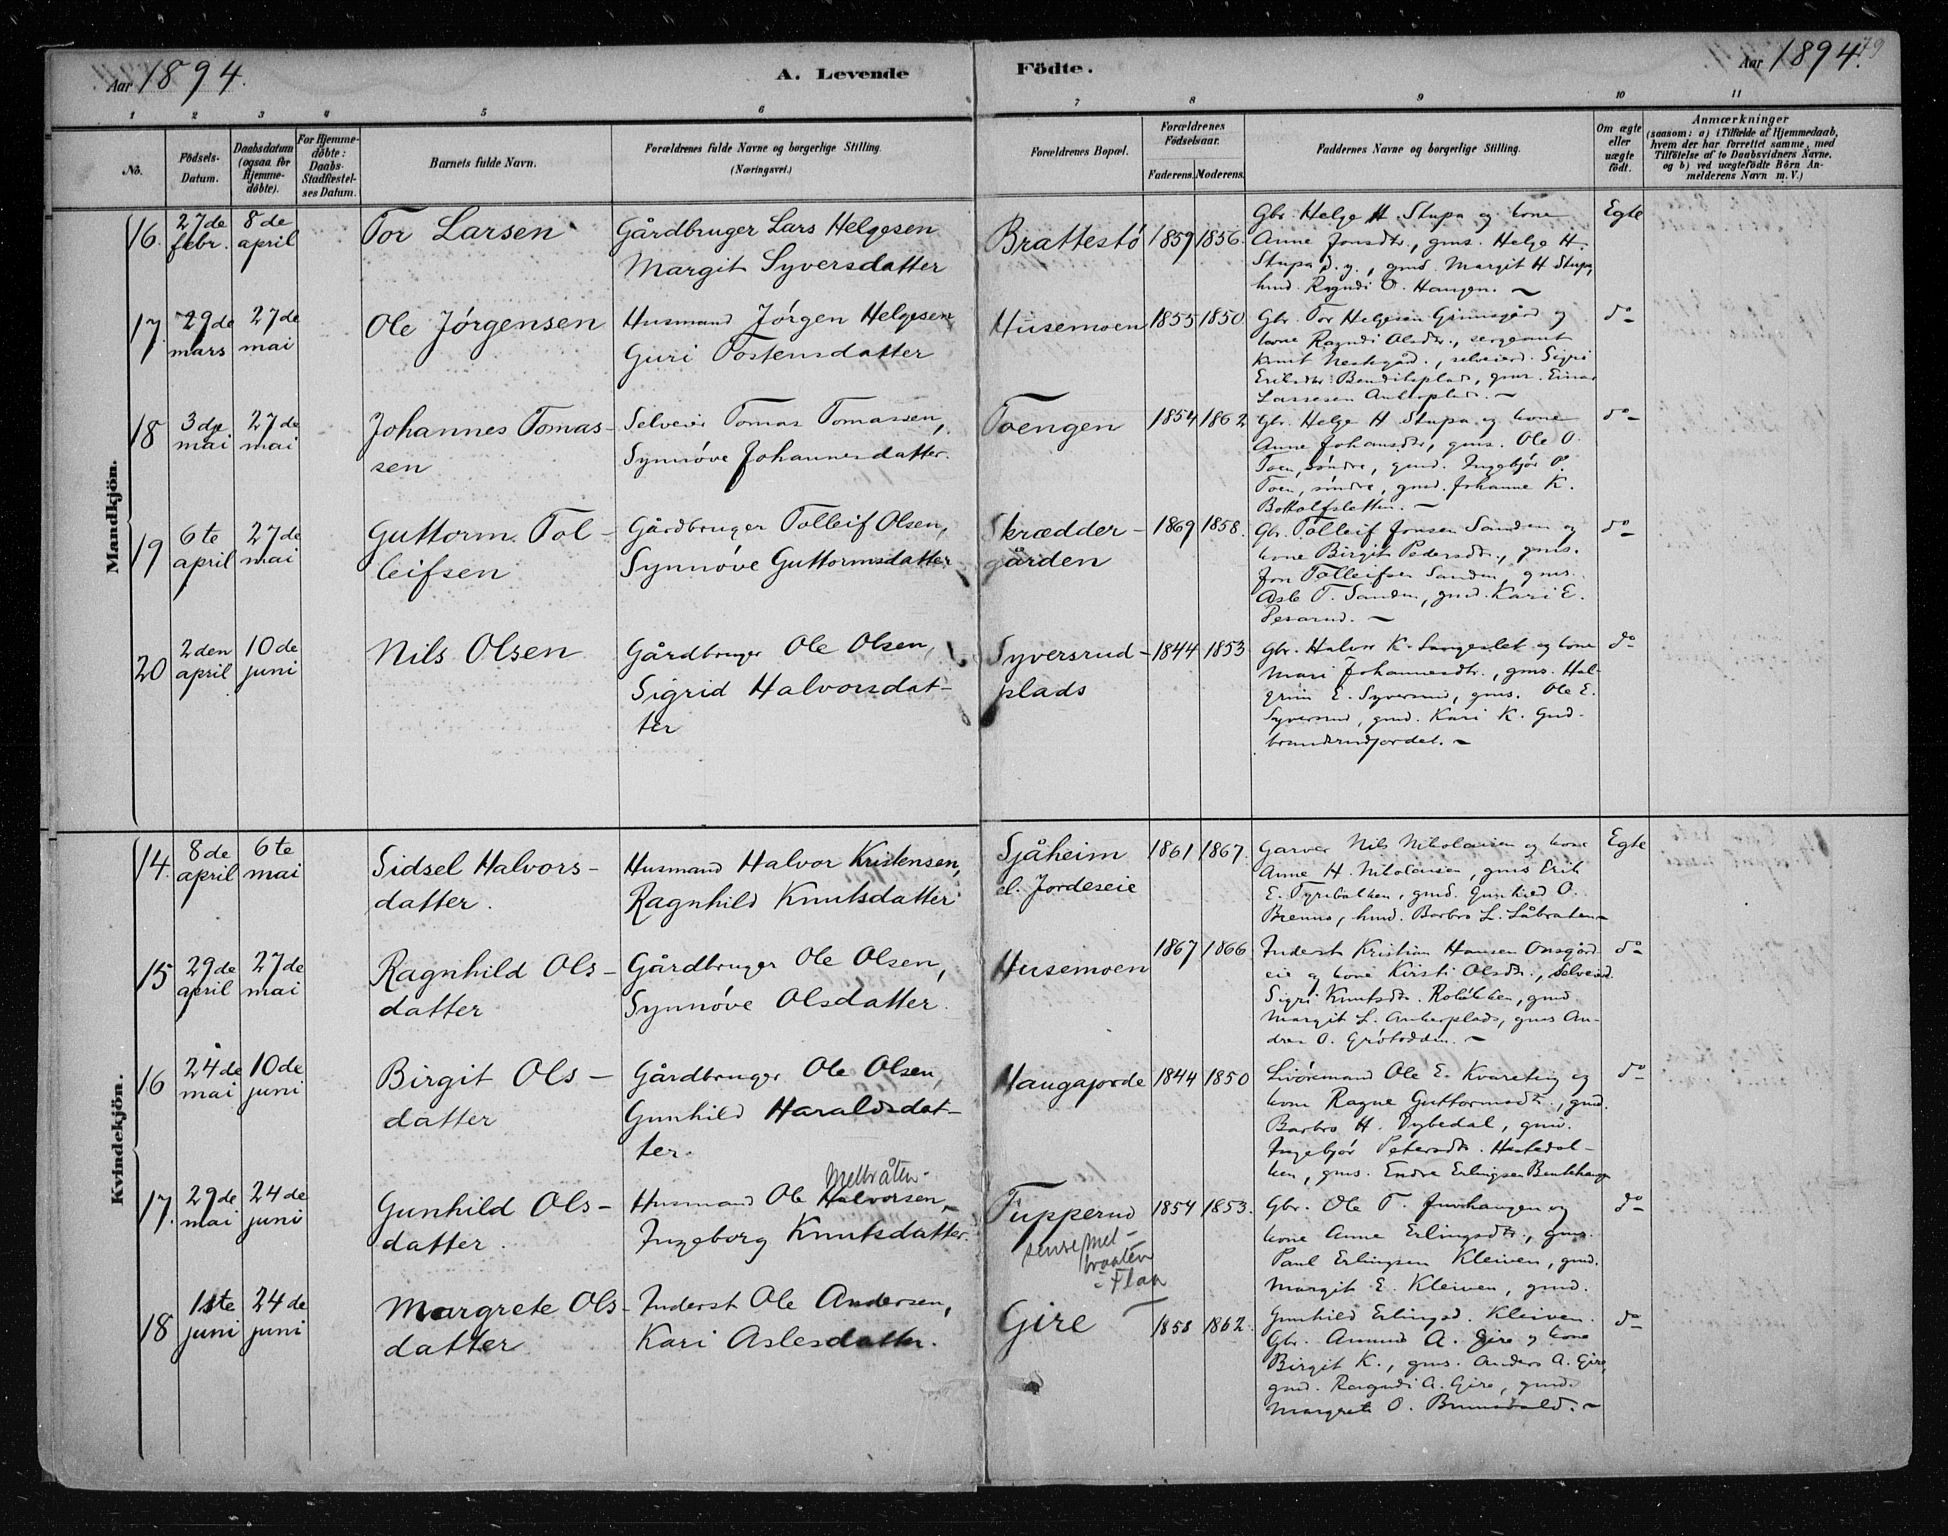 Aar 1894.
A. Levende Födte.
Aar 1894.
79
1 2 3 4 5 6 7 8 9 10 11
No.
Födsels-Datum.
Daabsdatum (ogsaa for Hjemme-döbte).
For Hjemme-döbte: Daabs-Stadfæstel-ses Datum.
Barnets fulde Navn.
Forældrenes fulde Navne og borgerlige Stilling.
(Næringsvei.)
Forældrenes Bopæl.
Forældrenes Födselsaar.
Faderens. Moderens.
Faddernes Navne og borgerlige Stilling.
Om ægte eller uægte födt.
Anmærkninger
(saasom: a) i Tilfælde af Hjemmedaab,
hvem der har forrettet samme, med
Tilföielse af to Daabsvidners Navne,
og b) ved uægtefödte Börn An-
melderens Navn m. V.)
Mandkjön.
16. 27de febr. 8de april
Tor Larsen
Gårdbruger Lars Helgesen
Margit Syversdatter
Brattestø 1859 1856.
Gbr. Helge H. Stupa og kone
Anne Jonsdtr., gms. Helge H.
Stupa d. y., gmd. Margit H Stupa,
hmd. Ragndi O. Haugen.
Egte
17. 29de mars 27de mai
Ole Jørgensen
Husmand Jørgen Helgesen
Guri Tostensdatter
Husemoen 1855 1850.
Gbr. Tor Helgesen
kone Ragndi Olsdtr., sergeant
Knut
gms. Einar
Larsesen
do
18 3die mai 27de mai
Johannes Tomas-
sen
Selveier Tomas Tomassen,
Synnøve Johannesdatter.
Toengen 1854 1862
Gbr. Helge H Stupa og kone
Anne Johansdtr, gms. Ole O.
Toen, søndre, gmd. Ingebjør O.
Toen, søndre, gmd. Johanne K.
Bottolfsletten.
do
19 6te april 27de mai
Guttorm Tol-
leifsen
Gårdbruger Tolleif Olsen,
Synnøve Guttormsdatter
Skrædder-
gården
1869 1858.
Gbr. Tolleif Jonsen Sanden og
kone Birgit Pedersdtr., gms.
Jon Tolleifsen Sanden, gms.
Asle T. Sanden, gmd. Kari E.
do
20 2den april 10de juni
Nils Olsen
Gårdbruger Ole Olsen,
Sigrid Halvorsdat-
ter
Syversrud-
plads
1844 1853
Gbr. Halvor K. og kone
Mari Johannesdtr., gms. Hal-
grim E. Syversrud, gms. Ole E.
Syversrud, gmd. Kari K. Gud-
brandsrudjordet.
do
Kvindekjön.
14. 8de april 6te mai
Sidsel Halvors-
datter.
Husmand Halvor Kristensen,
Ragnhild Knutsdatter
Sjåheim
el. Jordeseie
1861 1867.
Garver Nils Nikolaisen og kone
Anne H. Nikolaisen, gms Erik
E. Tyribakken, gmd. Gunhild O.
Brenno, hmd. Barbro L. Låbraten
Egte
15 29de april 27de mai
Ragnhild Ols-
datter
Gårdbruger Ole Olsen,
Synnøve Olsdatter.
Husemoen 1867 1866
Inderst Kristian Hansen Onsgård
eie og kone Kirsti Olsdtr.,
Sigri Knutsdtr. gmd
Margit L. Ankerplads, gms An-
dres O. Grøtodden.
do
16 24de mai 10de juni
Birgit Ols-
datter
Gårdbruger Ole Olsen,
Gunhild Haraldsdat-
ter.
Haugajorde 1844 1850
Ole E. og
kone Ragne Guttormsdtr., gmd.
Barbro H. Dybedal, gmd.
Ingebjør Petersdtr.
gms. Endre Erlingsen
do
17. 29de mai 24de juni
Gunhild Ols-
datter.
Melbråten
Husmand Ole Halvorsen,
Ingeborg Knutsdatter.
Tupperud
senere Mel-
braaten
i Flaa
1854 1853.
Gbr. Ole T. Juvehaugen og
kone Anne Erlingsdtr., gms.
Paul Erlingsen Kleiven, gmd.
Margit E. Kleiven, gmd.
Gunhild Erlingsd. Kleiven.
do
18 1ste juni 24de juni
Margrete Ols-
datter
Inderst Ole Andersen,
Kari Aslesdatter.
Gire 1858 1862.
Gbr. Amund A. Gire og kone
Birgit K., gms. Anders A. Gire,
gmd. Ragndi A. Gire, gmd.
Margrete O.
do